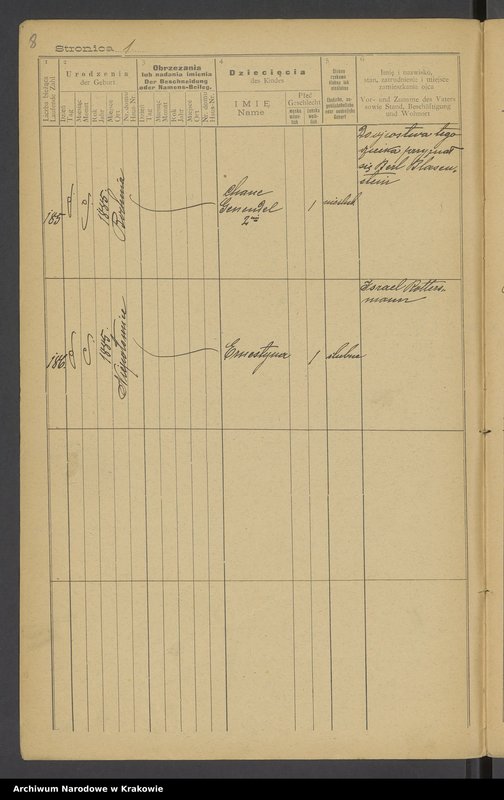 8
Stronica 1
1
Liczba bieżąca
Laufende Zahl
2
Urodzenia
der Geburt
Dzień
Tag
Miesiąc
Monat
Rok
Jahr
Miejsce
Ort
Nr. domu
Haus-Nr.
3
Obrzezania
lub nadania imienia
Der Beschneidung
oder Namens-Beileg.
Dzień
Tag
Miesiąc
Monat
Rok
Jahr
Miejsce
Ort
Nr. domu
Haus-Nr.
4
Dziecięcia
des Kindes
IMIĘ
Name
Płeć
Geschlecht
męska
männ-
lich
żeńska
weib-
lich
5
ślubne
nieślubne
Eheliche
oder uneheliche
Geburt
6
Imię i nazwisko,
stan, zatrudnienie i miejsce
zamieszkania ojca
Vor- und Zuname des Vaters
sowie Stand, Beschäftigung
und Wohnort
185
8
9
1885
Bochnia
Chane
Genendel
2ga
1
nieślub
Do ojcostwa tego
dziecka przyznał
się Berl Blasen-
stein
186
8
9
1885
Niepołomice
Ernestyna
1
ślubne
Israel Rotters-
mann
Archiwum Narodowe w Krakowie